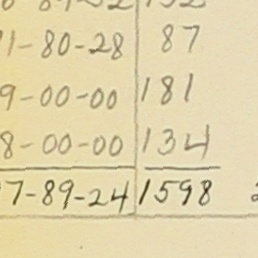 1-80-28 87
9-00-00 181
8-00-00 134
7-89-24 1598